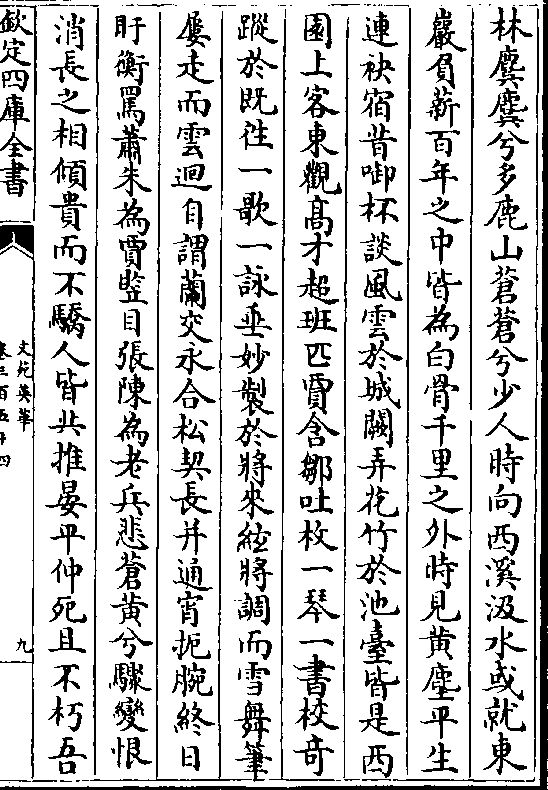 林麌麌兮多鹿山蒼蒼兮少人時向西溪汲水或就東
巖負薪百年之中皆為白骨千里之外時見黄塵平生
連袂宿昔啣杯談風雲於城闕弄花竹於池臺皆是西
園上客東觀髙才超班匹賈含鄒吐枚一琴一書校竒
蹤於既徃一歌一詠垂妙製於將來絃將調而雪舞筆
屢走而雲迴自謂蘭交永合松契長并通宵扼腕終日
盱衡罵蕭朱為賈豎目張陳為老兵悲蒼黄兮驟變恨
消長之相傾貴而不驕人皆共推晏平仲死且不朽吾
欽定四庫全書
文苑英華
卷三百五十四
九